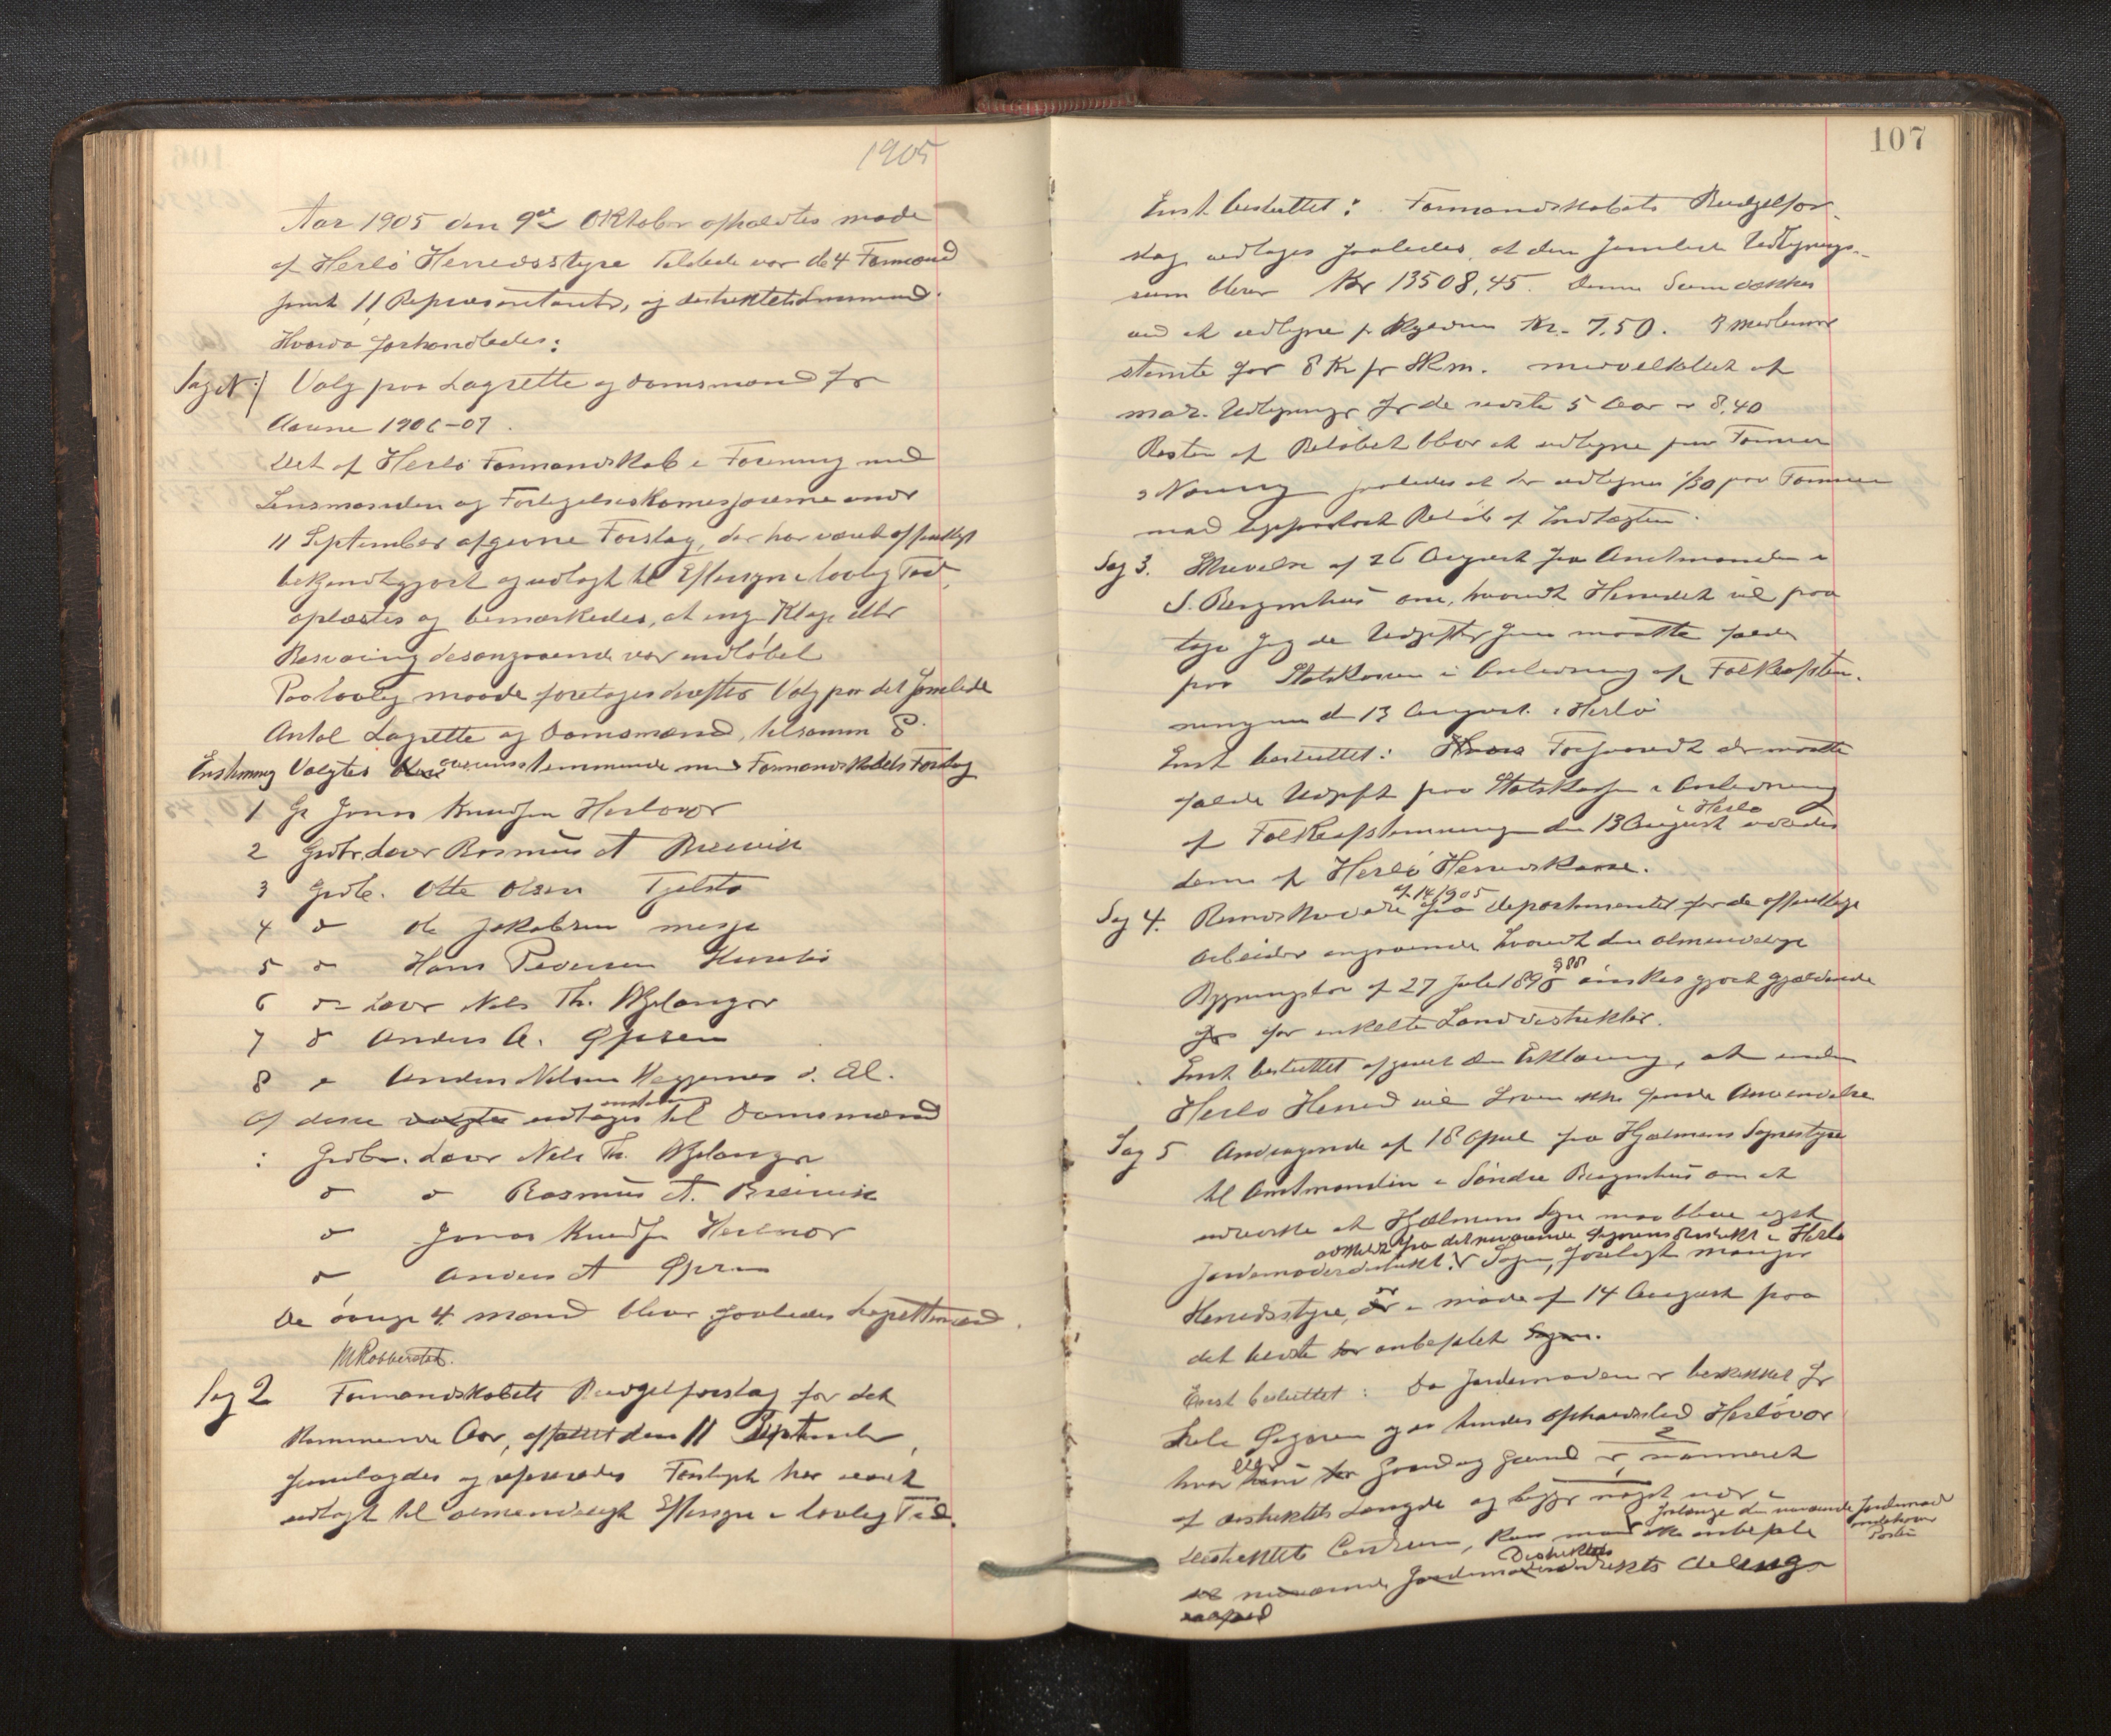 1905
Aar 1905 den 9de Oktober afholdtes møde
af Herlø Herredsstyre tilstede var de 4 Formænd
samt 11 Repræsentanter, og distriktets Lensmand.
Hvorda forhandledes:
Sag N: 1 Valg paa Lagrette og Domsmænd for
Aarene 1906-07.
Det af Herlø Formandskab i Forening med
Lensmanden og Forligelseskomissærerne under
11 September afgivne Forslag, der har været offentligt
bekjendtgjort og udlagt til Eftersyn i lovlig Tid,
oplæstes og bemærkedes, at ingen Klage eller
Besværing desangaaende var indløbet
Paa lovlig maade foretoges derefter Valg paa det samlede
Antal Lagrette og Domsmænd, tilsammen 8.
Enstemmig Valgtes overensstemmende med Formandskabets Forslag
1 Gr Jonas Knudsen Herløvær
2 Grdbr. Lavr Rasmus A Breivik
3 Grdbr. Otte Olsen Tjelstø
4 do Ole Jakobsen Misje
5 do Hans Pedersen
6 do Lavr Nels Th. Bjelanger
7 do Anders A. Øpsen
8 do Anders Nilsen Heggernes d. El.
Af disse valgte udtoges enstem til Domsmænd
: Grdbr. Lavr Nels Th. Bjelanger
do do Rasmus A. Breivik
do Jonas Knudsen Herløvær
do Anders A Øpsen
De øvrige 4 mænd blev saaledes Lagrettemænd.
M Robberstad.
Sag 2 Formandskabets Budgetforslag for det
kommende Aar, affattet den 11 September,
fremlagdes og refereredes Forslaget har været
udlagt til almindeligt Eftersyn i lovlig Tid.
107
Enst besluttet: Formandskabets Budgetfor-
slag vedtages saaledes, at den samlede Udlignings-
sum bliver Kr 13508,45. Denne Sum dækkes
ved at udligne p. Skyldm Kr. 7.50. 3 Medlemmer
stemte for 8 Kr pr Skm.
matr. Udligninger for de sidste 5 Aar er 8,40
Resten af Beløbet blir at udligne paa Formue
og Næring saaledes at der udlignes 1/30 paa Formuen
mod ligesaastort Beløb af Indtægten.
Sag 3. Skrivelse af 26 August fra Amtmanden i
S. Bergenhus om, hvorvidt Herredet vil paa
tage sig de Udgifter som maatte falde
paa Statskassen i Anledning af Folkeafstem-
ningen d 13 August i Herlø
Enst besluttet: Forsaavidt der maatte
falde Udgift paa Statskassen i Anledning
af Folkeafstemningen den 13 August i Herlø udredes
denne af Herlø Herredskasse.
Sag 4. Rundskrivelse af 14/9 05 fra departementet for de offentlige
Arbeider angaaende hvorvidt den almindelige
Bygningslov af 27 Juli 1896 ønskes gjort gjældende
for enkelte Landdistrikter.
Enst besluttet afgivet den Erklæring, at inden
Herlø Herred vil Loven ikke finde Anvendelse
Sag 5 Andragende af 18 April fra Hjelmens Sognestyre
til Amtmanden i Søndre Bergenhus om at
udvirke at Hjelmens Sogn maa blive eget
Jordemoderdistrikt, adskilt fra det nuværende Sognes distrikt i Herlø Sagen, forelagt Manger
Herredsstyre, er i møde af 14 August paa
det bedste anbefalet
Enst besluttet: Da Jordemoderen er beskikket for
hele Sognene og da hendes opholdssted Herløvær
hvor hun eier Gaard og Grund er i nærheden
af distriktets Længde og ligger noget nær i
Distriktets Centrum, kan man ikke anbefale saalænge den nuværende Jordemoder indehaver Posten
det nuværende Jordemoderdistrikts Distriktets deling